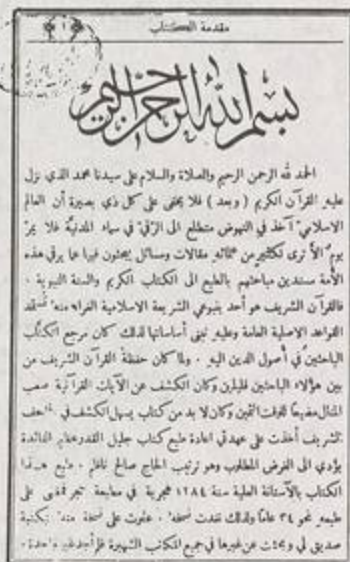 مقدمة الكتاب
بسم الله الرحمن الرحيم
الحمد لله الرحمن الرحيم والصلاة والسلام على سيدنا محمد الذي نزل
عليه القرآن الكريم ( وبعد ) فلا يخفى على كل ذي بصيرة أن العالم
الاسلامي آخذ في النهوض متطلع الى الرقي في سماء المدنية فلا يمر
يوم الا ترى لكثير من مقالات ومسائل يبحثون فيها عما يرقي هذه
الأمة مسندين مباحثهم بالطبع الى الكتاب الكريم والسنة النبوية .
فالقرآن الشريف هو أحد ينبوعي الشريعة الاسلامية الغراء منه تستمد
القواعد الاصلية العامة وعليه تبنى أساساتها لذلك كان مرجع الكتاب
الباحثين في أصول الدين اليه . ولما كان حفظة القرآن الشريف من
بين هؤلاء الباحثين قليلين وكان الكشف عن الآيات القرآنية صعب
المنال مضيعا للوقت الثمين وكان لا بد من كتاب يسهل الكشف في
الشريف أخذت على عهدتي اعادة طبع كتاب جليل القدر عظيم الفائدة
يؤدي الى الغرض المطلوب وهو ترتيب الحاج صالح ناظم . طبع هذا
الكتاب بالآستانة العلية سنة ١٢٨٤ هجرية في مطبعة فمضى على
طبعه نحو ٣٤ عاما ولذلك نفدت نسخه . عثرت على نسخة منه بمكتبة
صديق لي وبحثت عن غيرها في جميع المكاتب الشهيرة فلم أجد غير واحدة